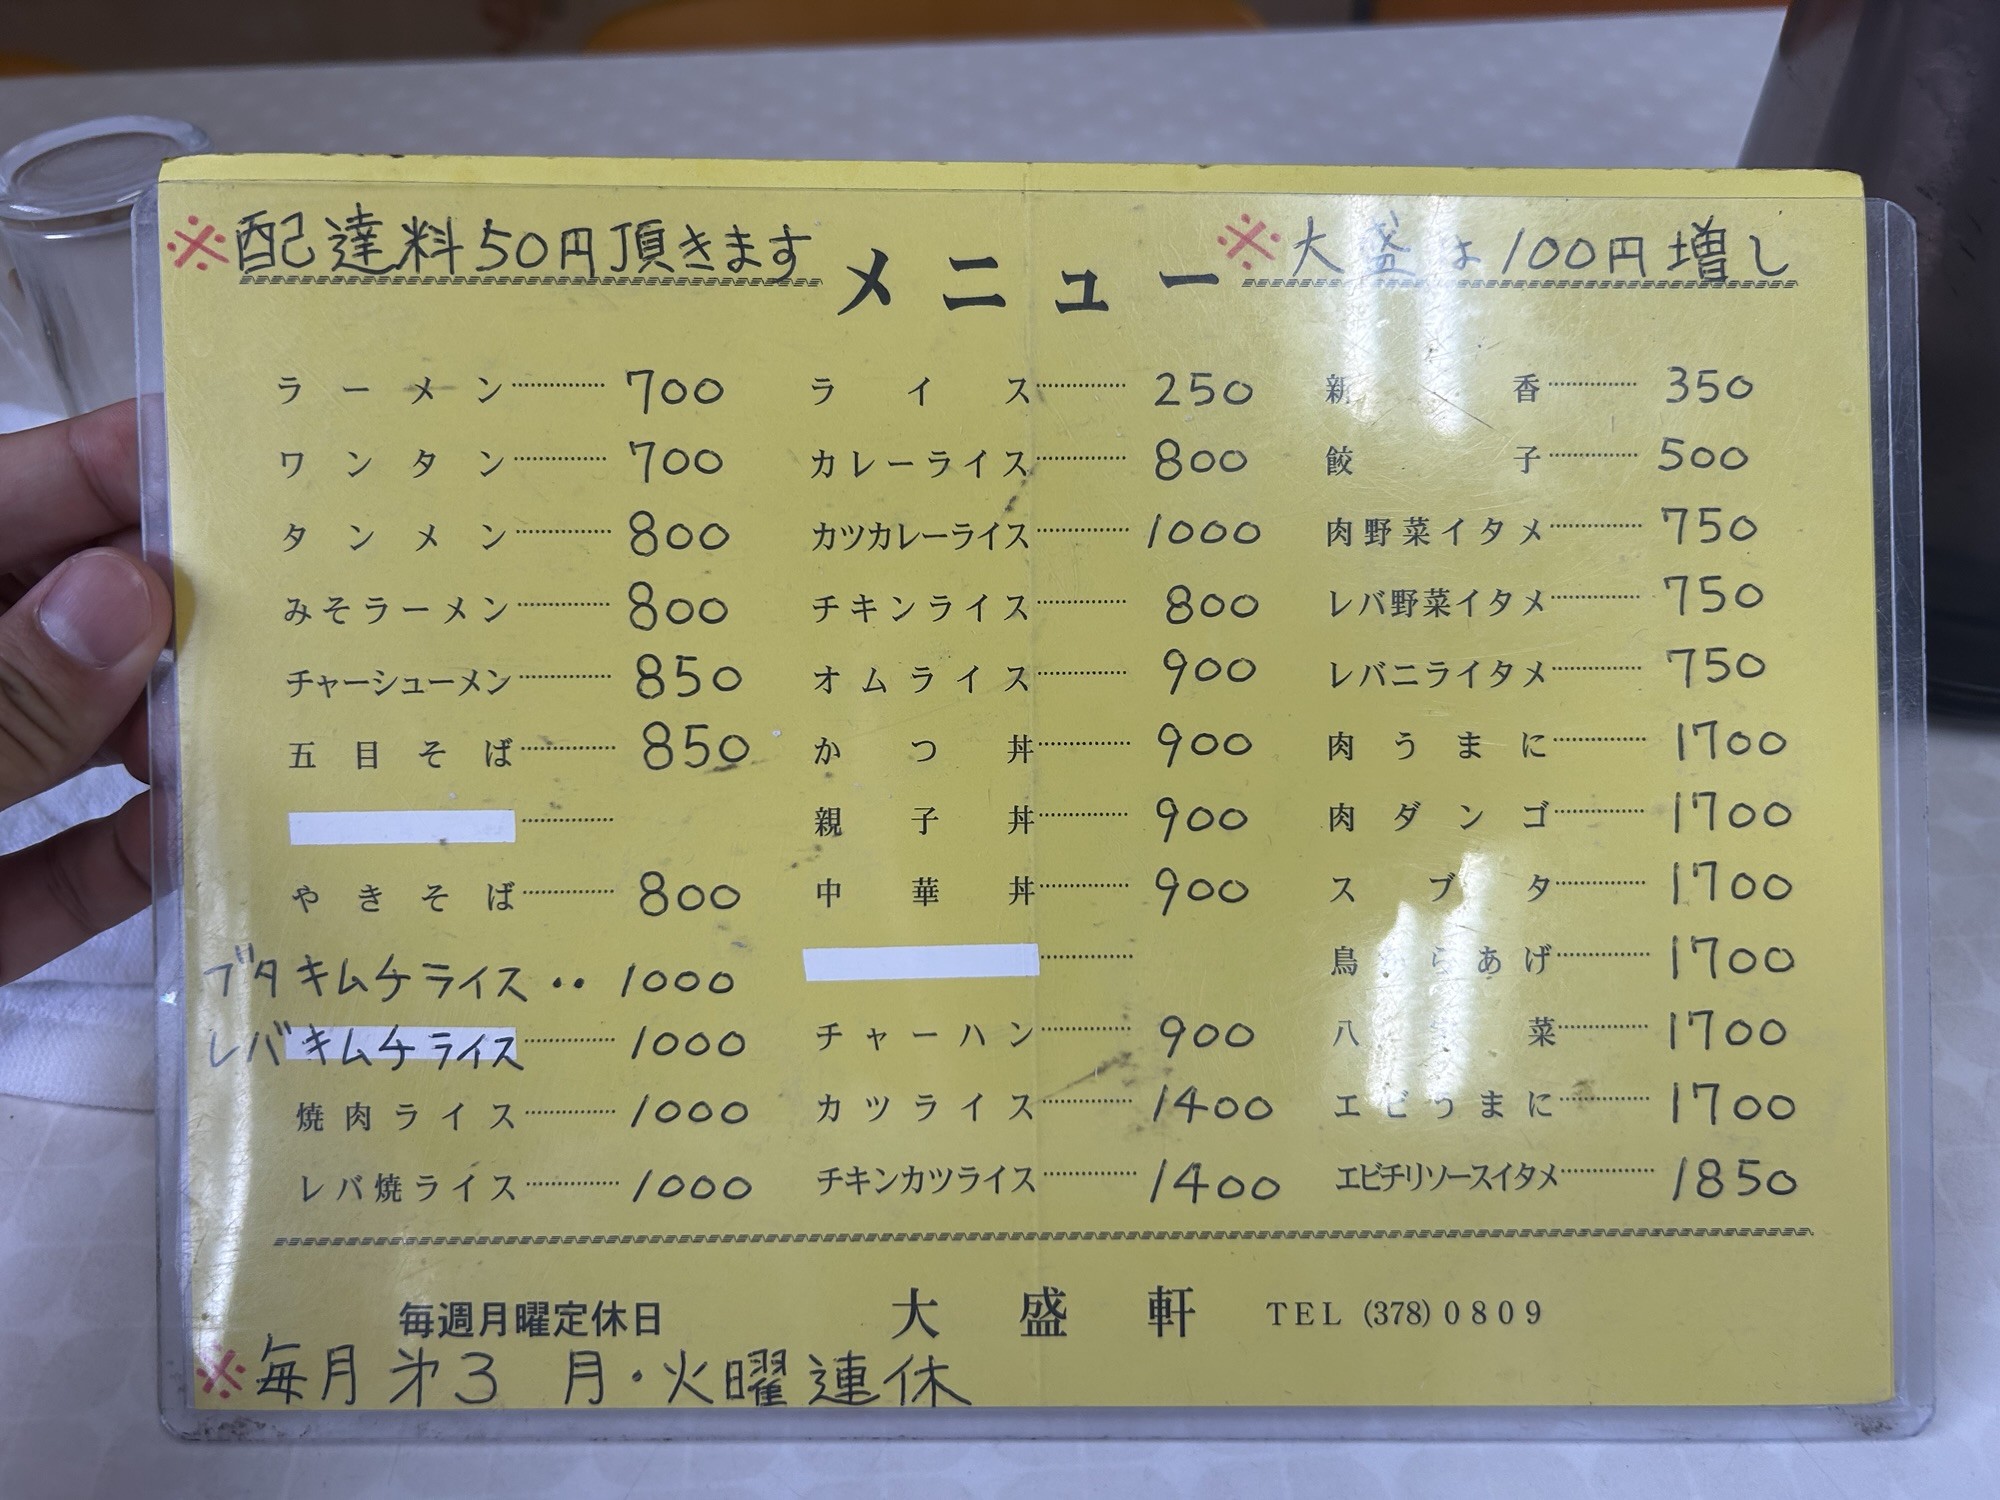 ※配達料50円頂きます
メニュー
※大盛は100円増し
ラーメン…………700
ワンタン…………700
タンメン…………800
みそラーメン…………800
チャーシューメン…………850
五目そば…………850
…………
やきそば…………800
ブタキムチライス‥1000
レバキムチライス…………1000
焼肉ライス…………1000
レバ焼ライス…………1000
ライス…………250
カレーライス…………800
カツカレーライス…………1000
チキンライス…………800
オムライス…………900
かつ丼…………900
親子丼…………900
中華丼…………900
…………
チャーハン…………900
カツライス…………1400
チキンカツライス…………1400
新香…………350
餃子…………500
肉野菜イタメ…………750
レバ野菜イタメ…………750
レバニライタメ…………750
肉うまに…………1700
肉ダンゴ…………1700
スブタ…………1700
鳥からあげ…………1700
八宝菜…………1700
エビうまに…………1700
エビチリソースイタメ…………1850
毎週月曜定休日
大盛軒 TEL (378) 0809
※毎月第3 月・火曜連休